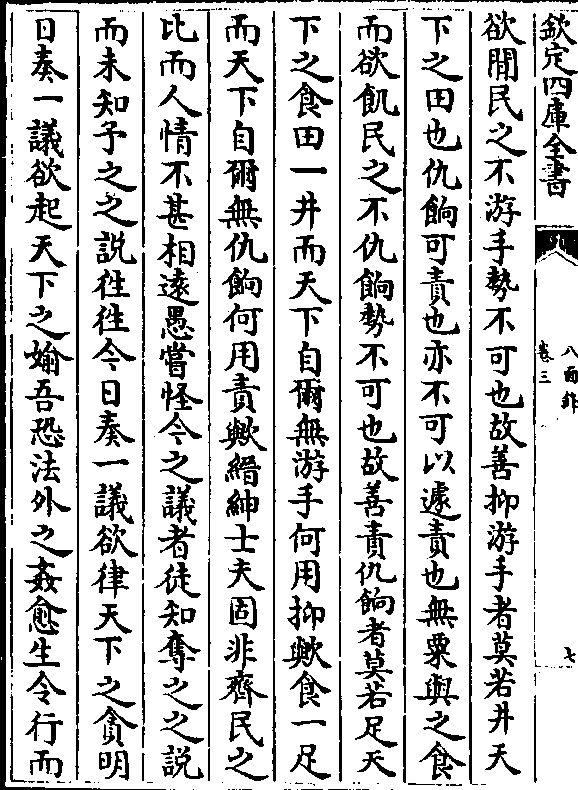 欽定四庫全書
八面鋒
卷三
七
欲閒民之不游手勢不可也故善抑游手者莫若井天
下之田也仇餉可責也亦不可以遽責也無粟與之食
而欲飢民之不仇餉勢不可也故善責仇餉者莫若足天
下之食田一井而天下自爾無游手何用抑歟食一足
而天下自爾無仇餉何用責歟縉紳士夫固非齊民之
比而人情不甚相遠愚嘗怪今之議者徒知奪之之說
而未知予之之說徃徃今日奏一議欲律天下之貪明
日奏一議欲起天下之媮吾恐法外之姦愈生令行而